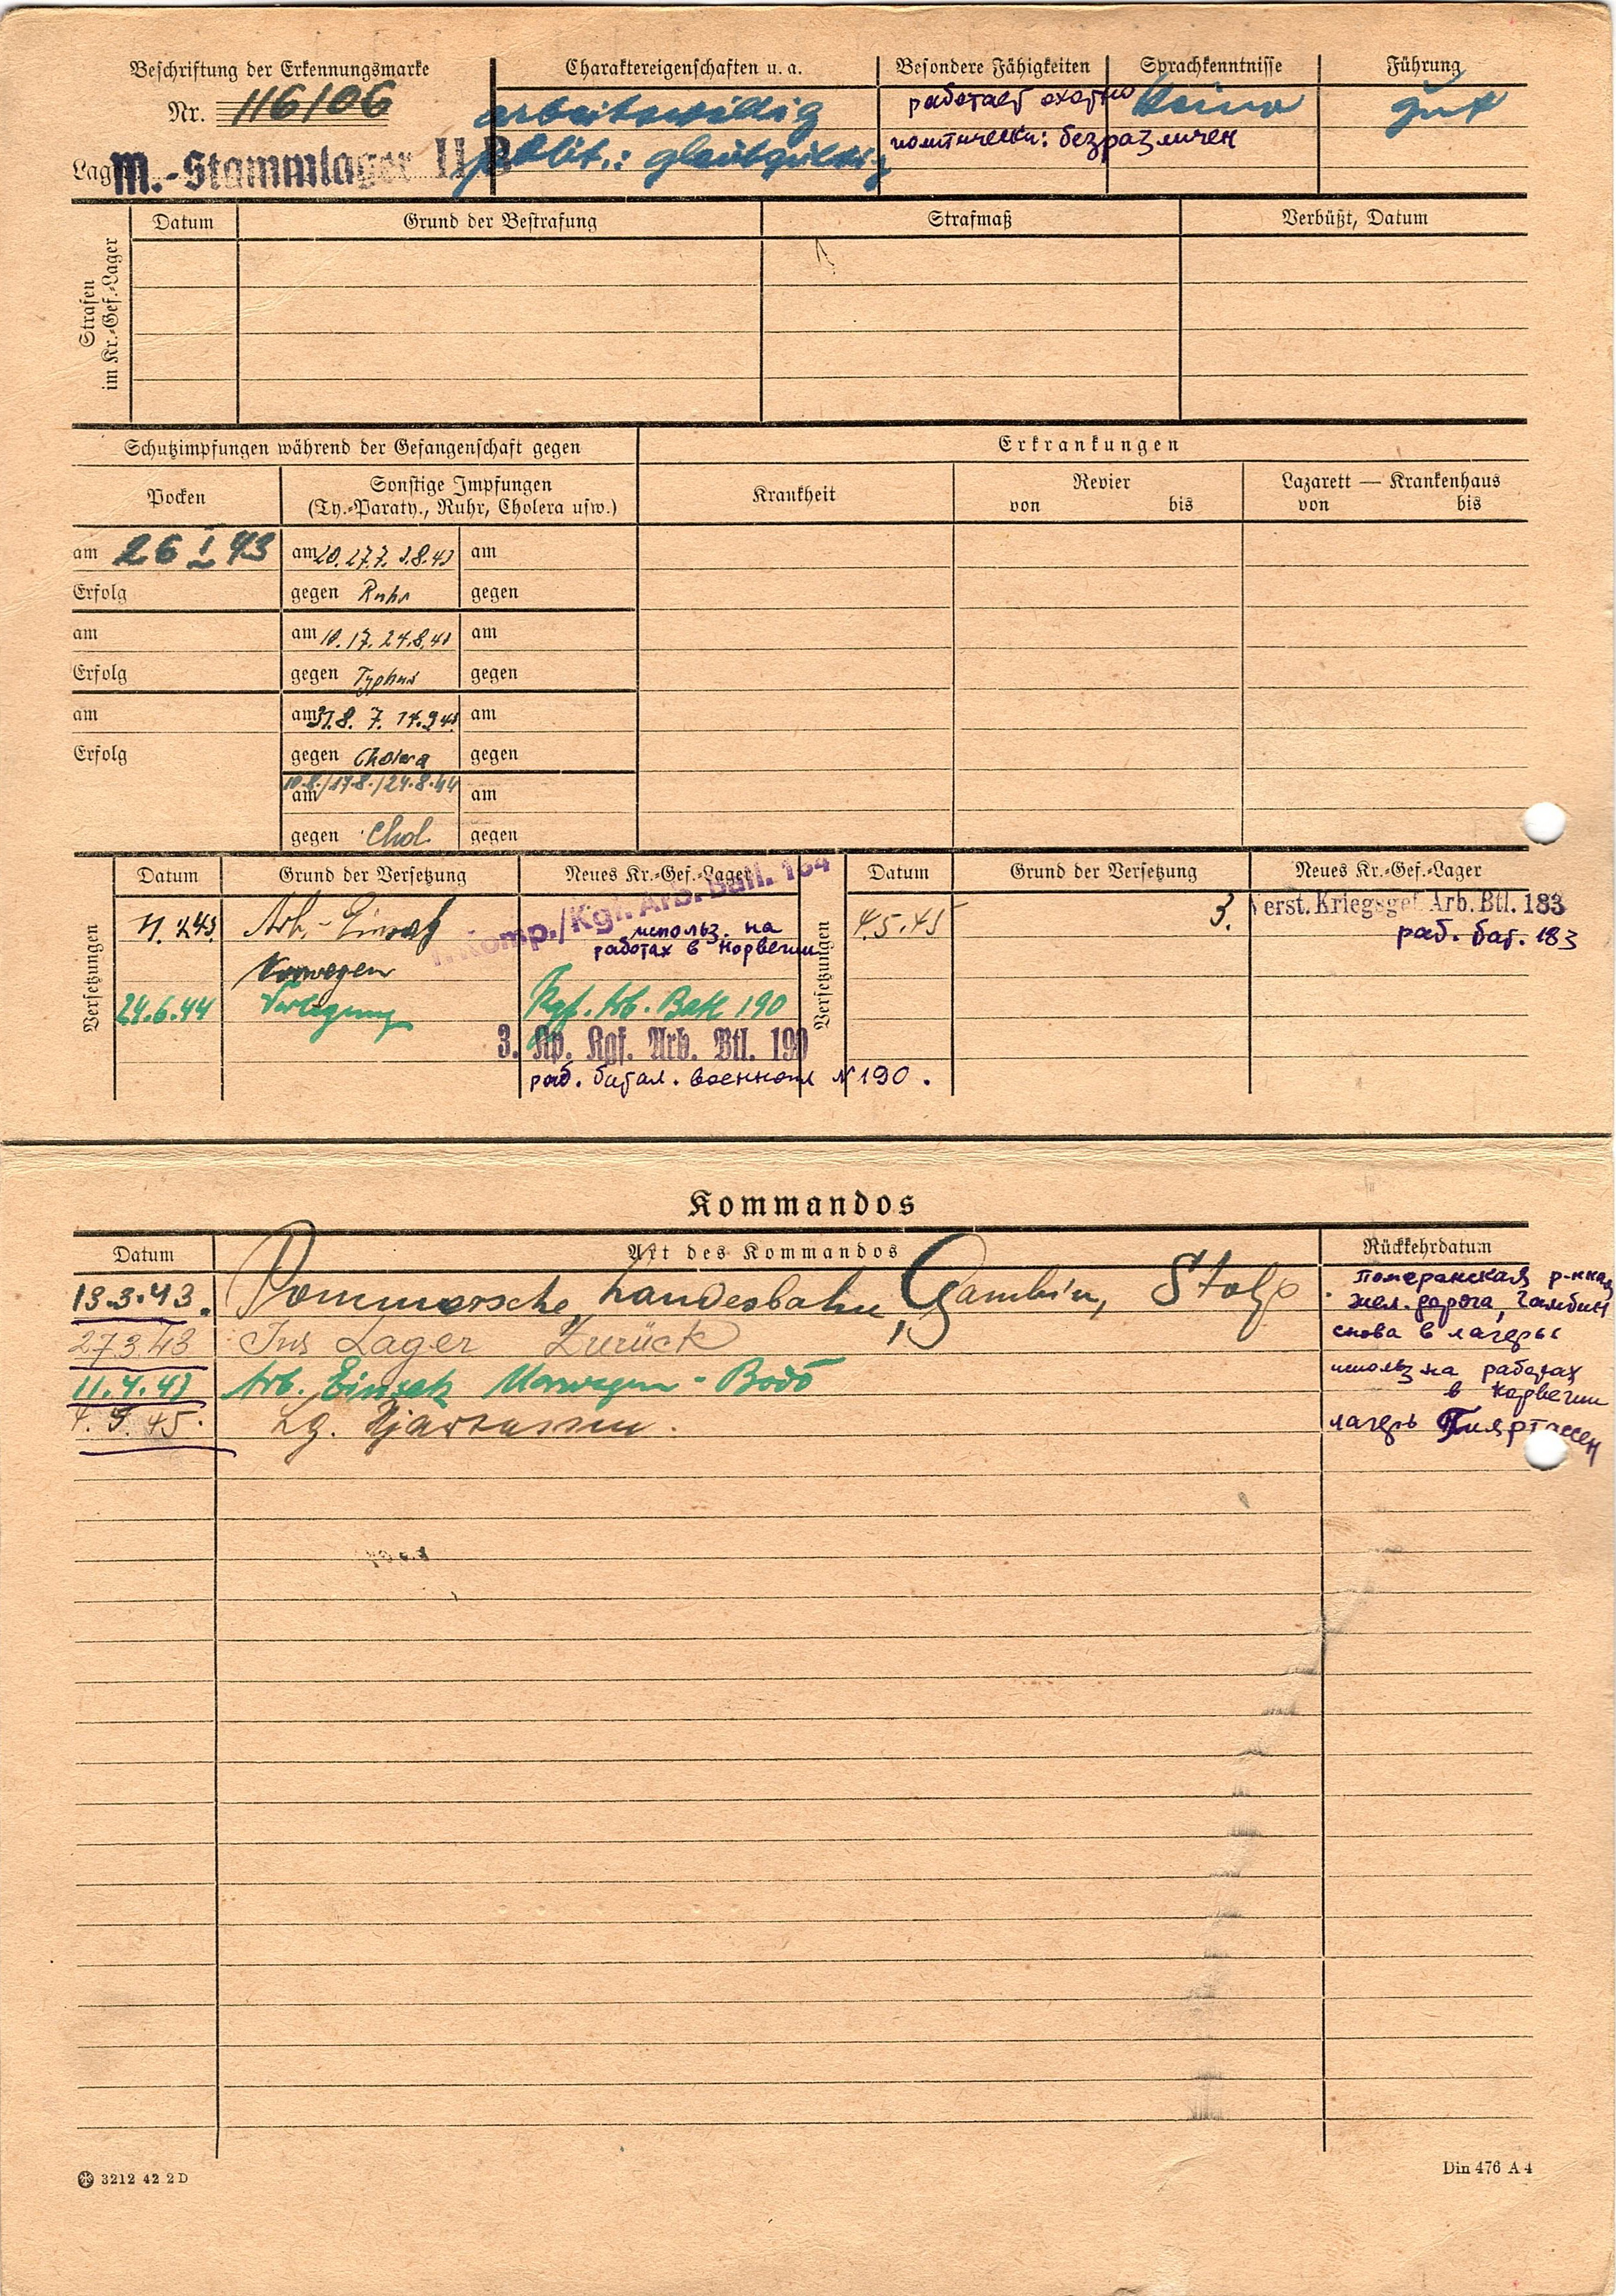 Beschriftung der Erkennungsmarke
Nr. 116106
Lager M.-Stammlager II B
Charaktereigenschaften u. a.
arbeitswillig
polit.: gleichgültig
Besondere Fähigkeiten
работает охотно
политически: безразличен
Sprachkenntnisse
keine
Führung
gut
Strafen
im Kr.-Gef.-Lager
Datum Grund der Bestrafung Strafmaß Verbüßt, Datum
Schutzimpfungen während der Gefangenschaft gegen
Pocken
Sonstige Impfungen
(Ty.-Paraty., Ruhr, Cholera usw.)
am 26 I 43 am 20. 27.7. 3.8.43 am
Erfolg gegen Ruhr gegen
am am 10. 17. 24.8.43 am
Erfolg gegen Typhus gegen
am am 31.8. 7. 14.9.43 am
Erfolg gegen Cholera gegen
10.8./17.8./24.8.44
am am
gegen Chol. gegen
Erkrankungen
Krankheit
Revier
von bis
Lazarett — Krankenhaus
von bis
Versetzungen
Datum Grund der Versetzung Neues Kr.-Gef.-Lager
Arb.-Einsatz
Komp./Kgf. Arb. Batl. 184
использ. на
работах в Норвегии
Norwegen
24.6.44 Verlegung Kgf. Arb. Batl 190
3. Kp. Kgf. Arb. Btl. 190
раб. батал. военнопл N 190.
Versetzungen
Datum Grund der Versetzung Neues Kr.-Gef.-Lager
4.5.45 3. Verst. Kriegsgef. Arb. Btl. 183
раб. бат. 183
Kommandos
Datum Art des Kommandos Rückkehrdatum
13.3.43. Pommersche Landesbahn, Gambin, Stolp
Померанская
жел. дорога, Гамбин
27.3.43 Ins Lager Zurück
снова в лагерь
11.4.43 Arb. Einsatz Norwegen - Bodö
использ на работах
в Норвегии
4.5.45. Lg.
лагерь
3212 42 2 D
Din 476 A 4